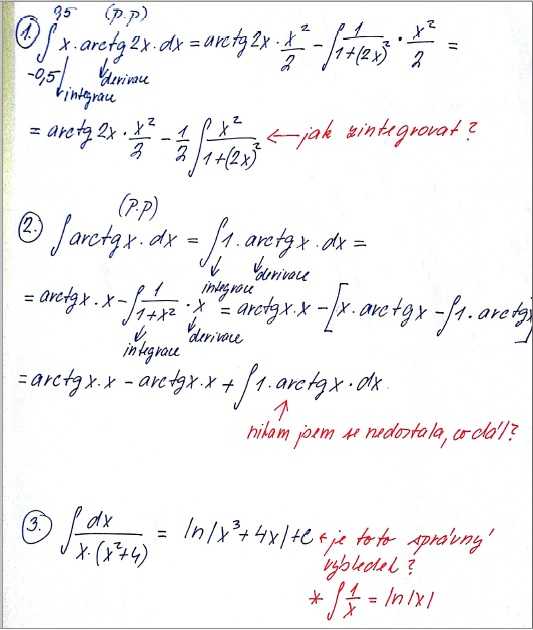 1. ∫ x · arctg2x · dx = arctg2x · x²/2 − ∫ 1/(1+(2x)²) · x²/2 =
0,5
(p.p)
−0,5
derivace
integrace
= arctg2x · x²/2 − 1/2 ∫ x²/(1+(2x)²) ← jak zintegrovat?
(p.p)
2. ∫ arctgx · dx = ∫ 1 · arctgx · dx =
integrace derivace
= arctgx · x − ∫ 1/(1+x²) · x = arctgx · x − [x · arctgx − ∫ 1 · arctgx]
integrace derivace
= arctgx · x − arctgx · x + ∫ 1 · arctgx · dx
nikam jsem se nedostala, co dál?
3. ∫ dx/(x · (x²+4)) = ln|x³+4x|+c ← je toto správný
výsledek?
* ∫ 1/x = ln|x|